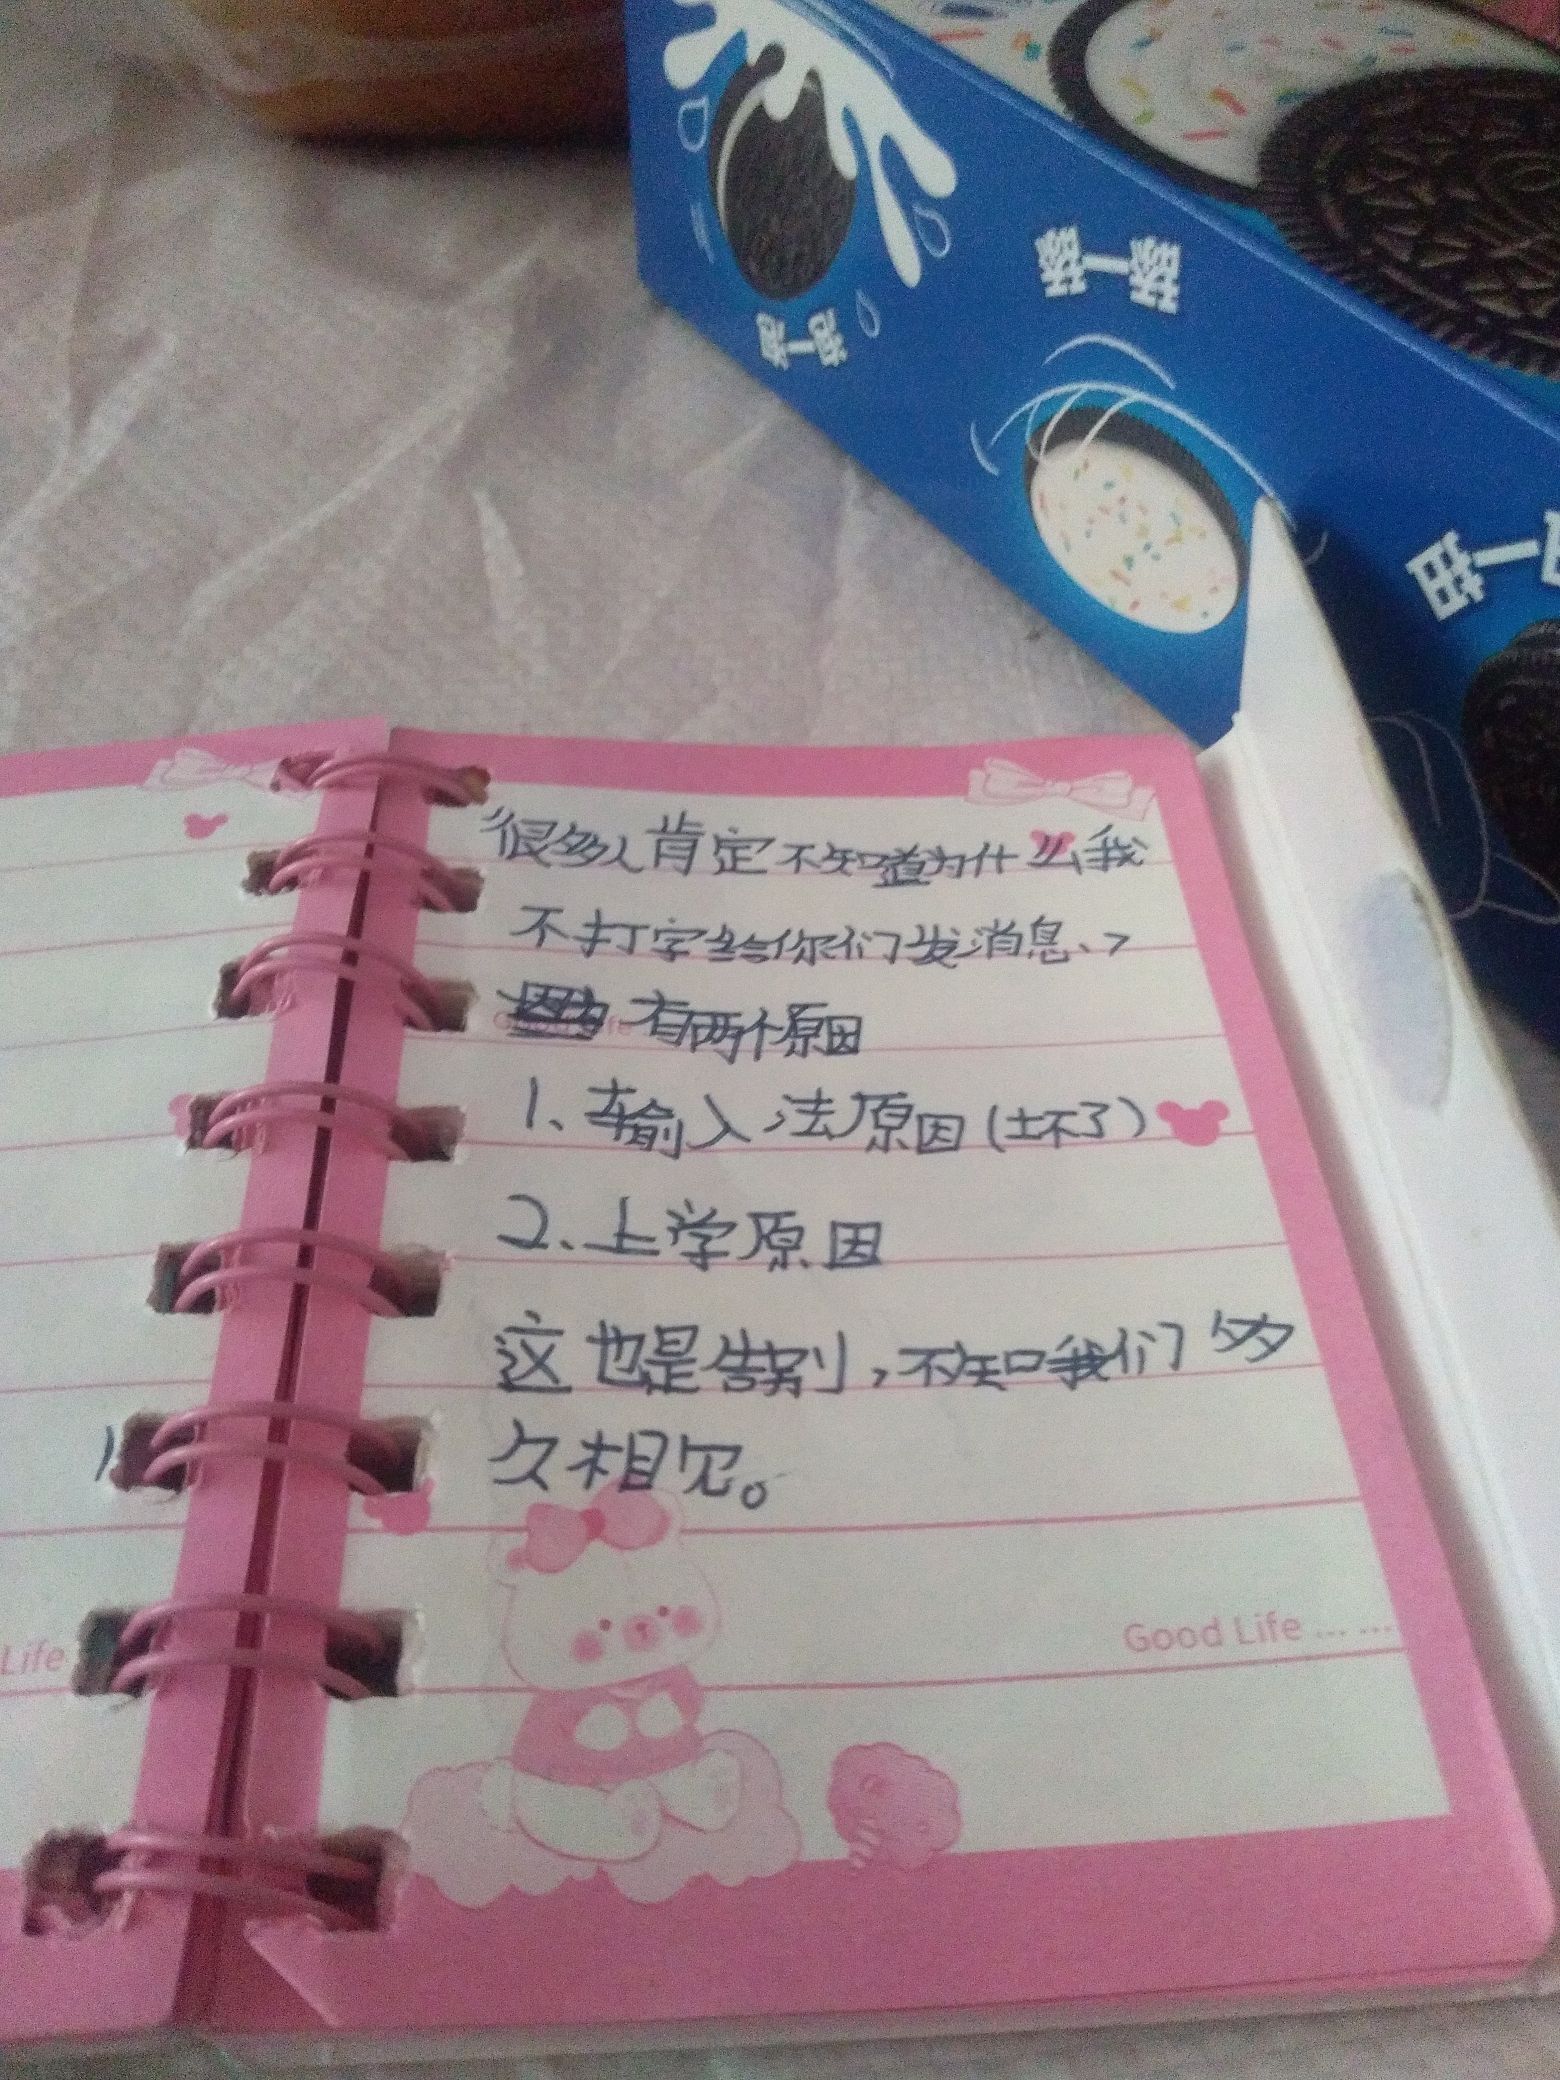 泡一泡
舔一舔
扭一扭
很多人肯定不知道为什么我
不打字给你们发消息、,
因为 有两个原因
1、输入法原因(坏了)
2、上学原因
这也是告别,不知我们多
久相见。
Good Life ... ...
Life